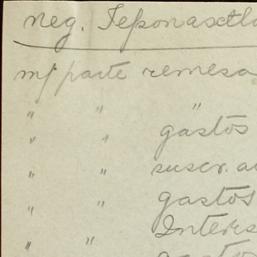 neg. Tepsonasctla
m/ parte remesa
" " "
" " gastos
" " suscr. a
" " gastos
" " Interes
" " gastos